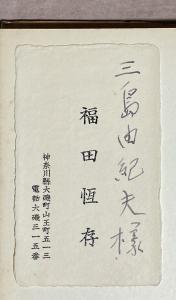 三島由紀夫様
福田恆存
神奈川縣大磯町山王町五一三
電話大磯三一五番